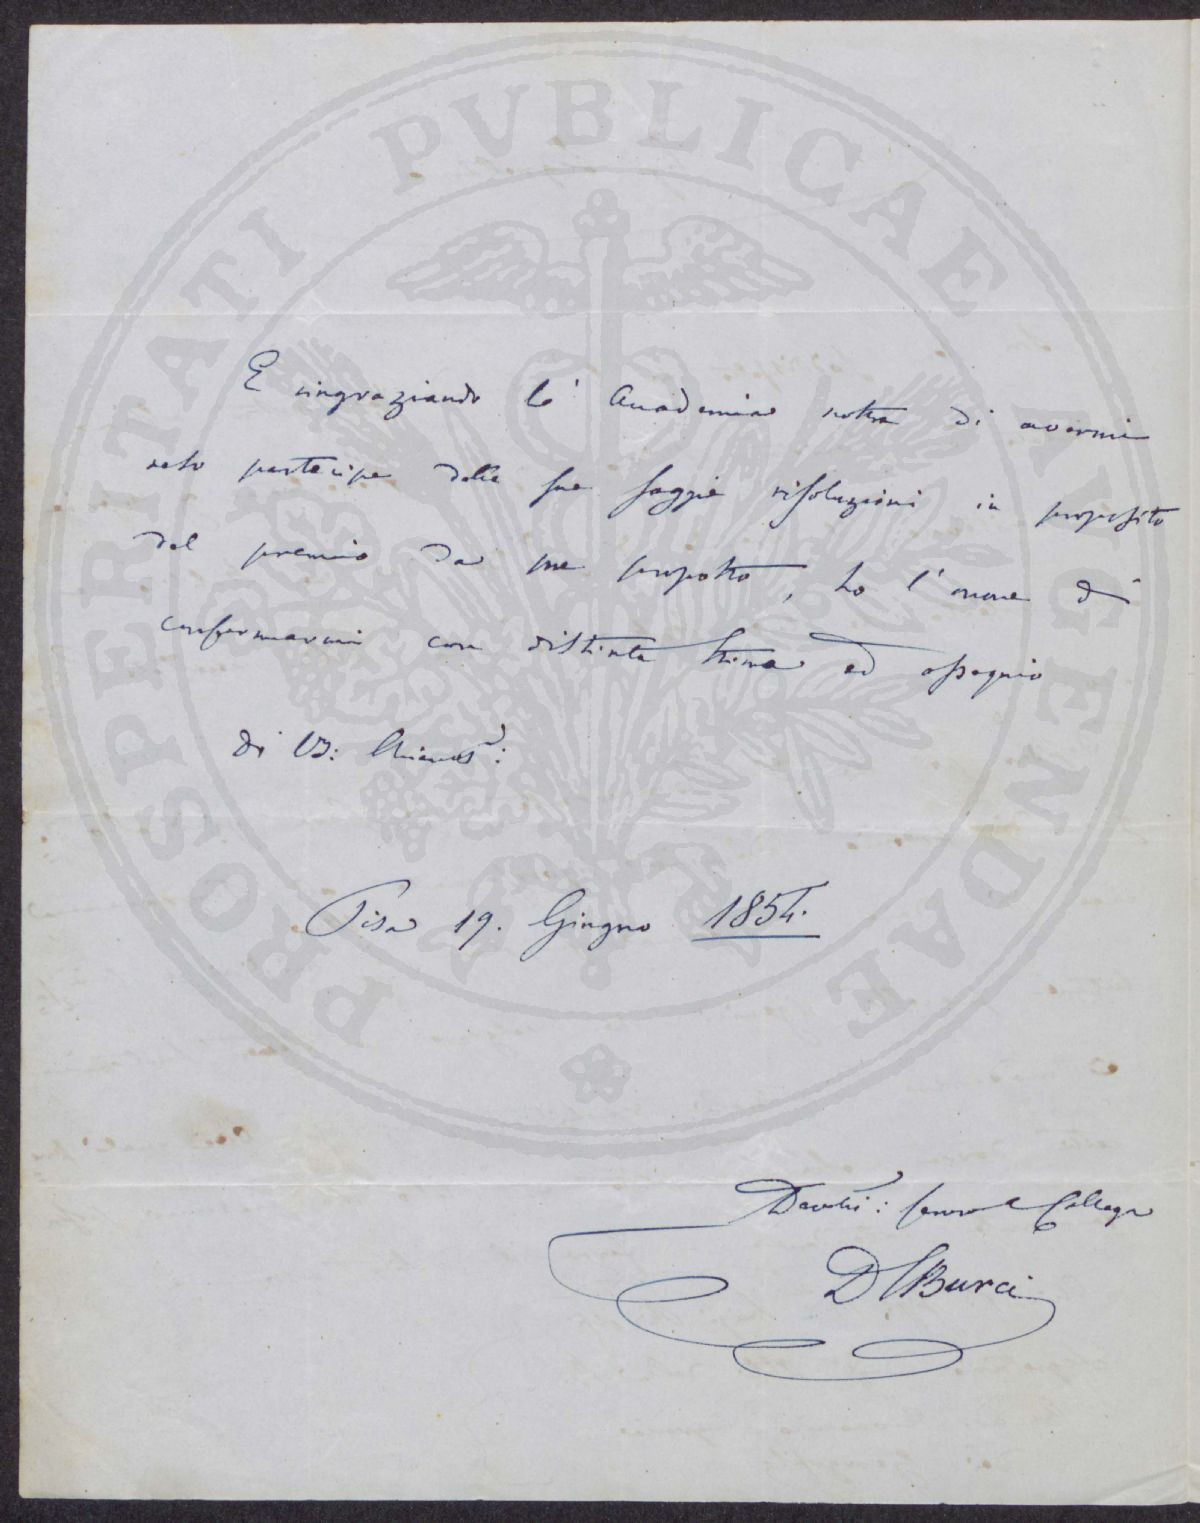 PROSPERITATI PUBLICAE AUGENDAE
E ringraziando l' Accademia nostra di avermi
reso partecipe delle sue saggie risoluzioni in proposito
del premio da me proposto, ho l'onore di
confermarmi con distinta stima ed ossequio
di VS:
Pisa 19. Giugno 1854.
Devotis: servo e Collega
D CBurci